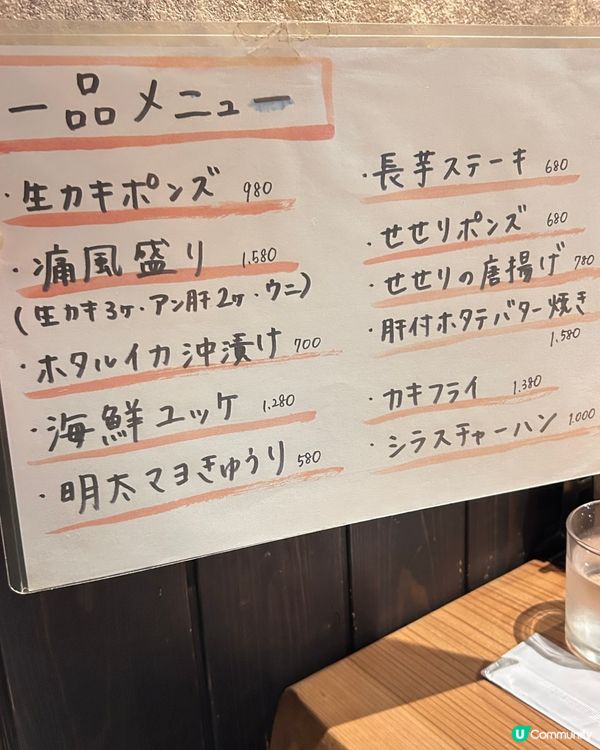 一品メニュー
・生カキポンズ 980
・痛風盛り 1.580
(生カキ3ヶ・アン肝2ヶ・ウニ)
・ホタルイカ沖漬け 700
・海鮮ユッケ 1.280
・明太マヨきゅうり 580
・長芋ステーキ 680
・せせりポンズ 680
・せせりの唐揚げ 780
・肝付ホタテバター焼き
1.580
・カキフライ 1.380
・シラスチャーハン 1.000
U Community